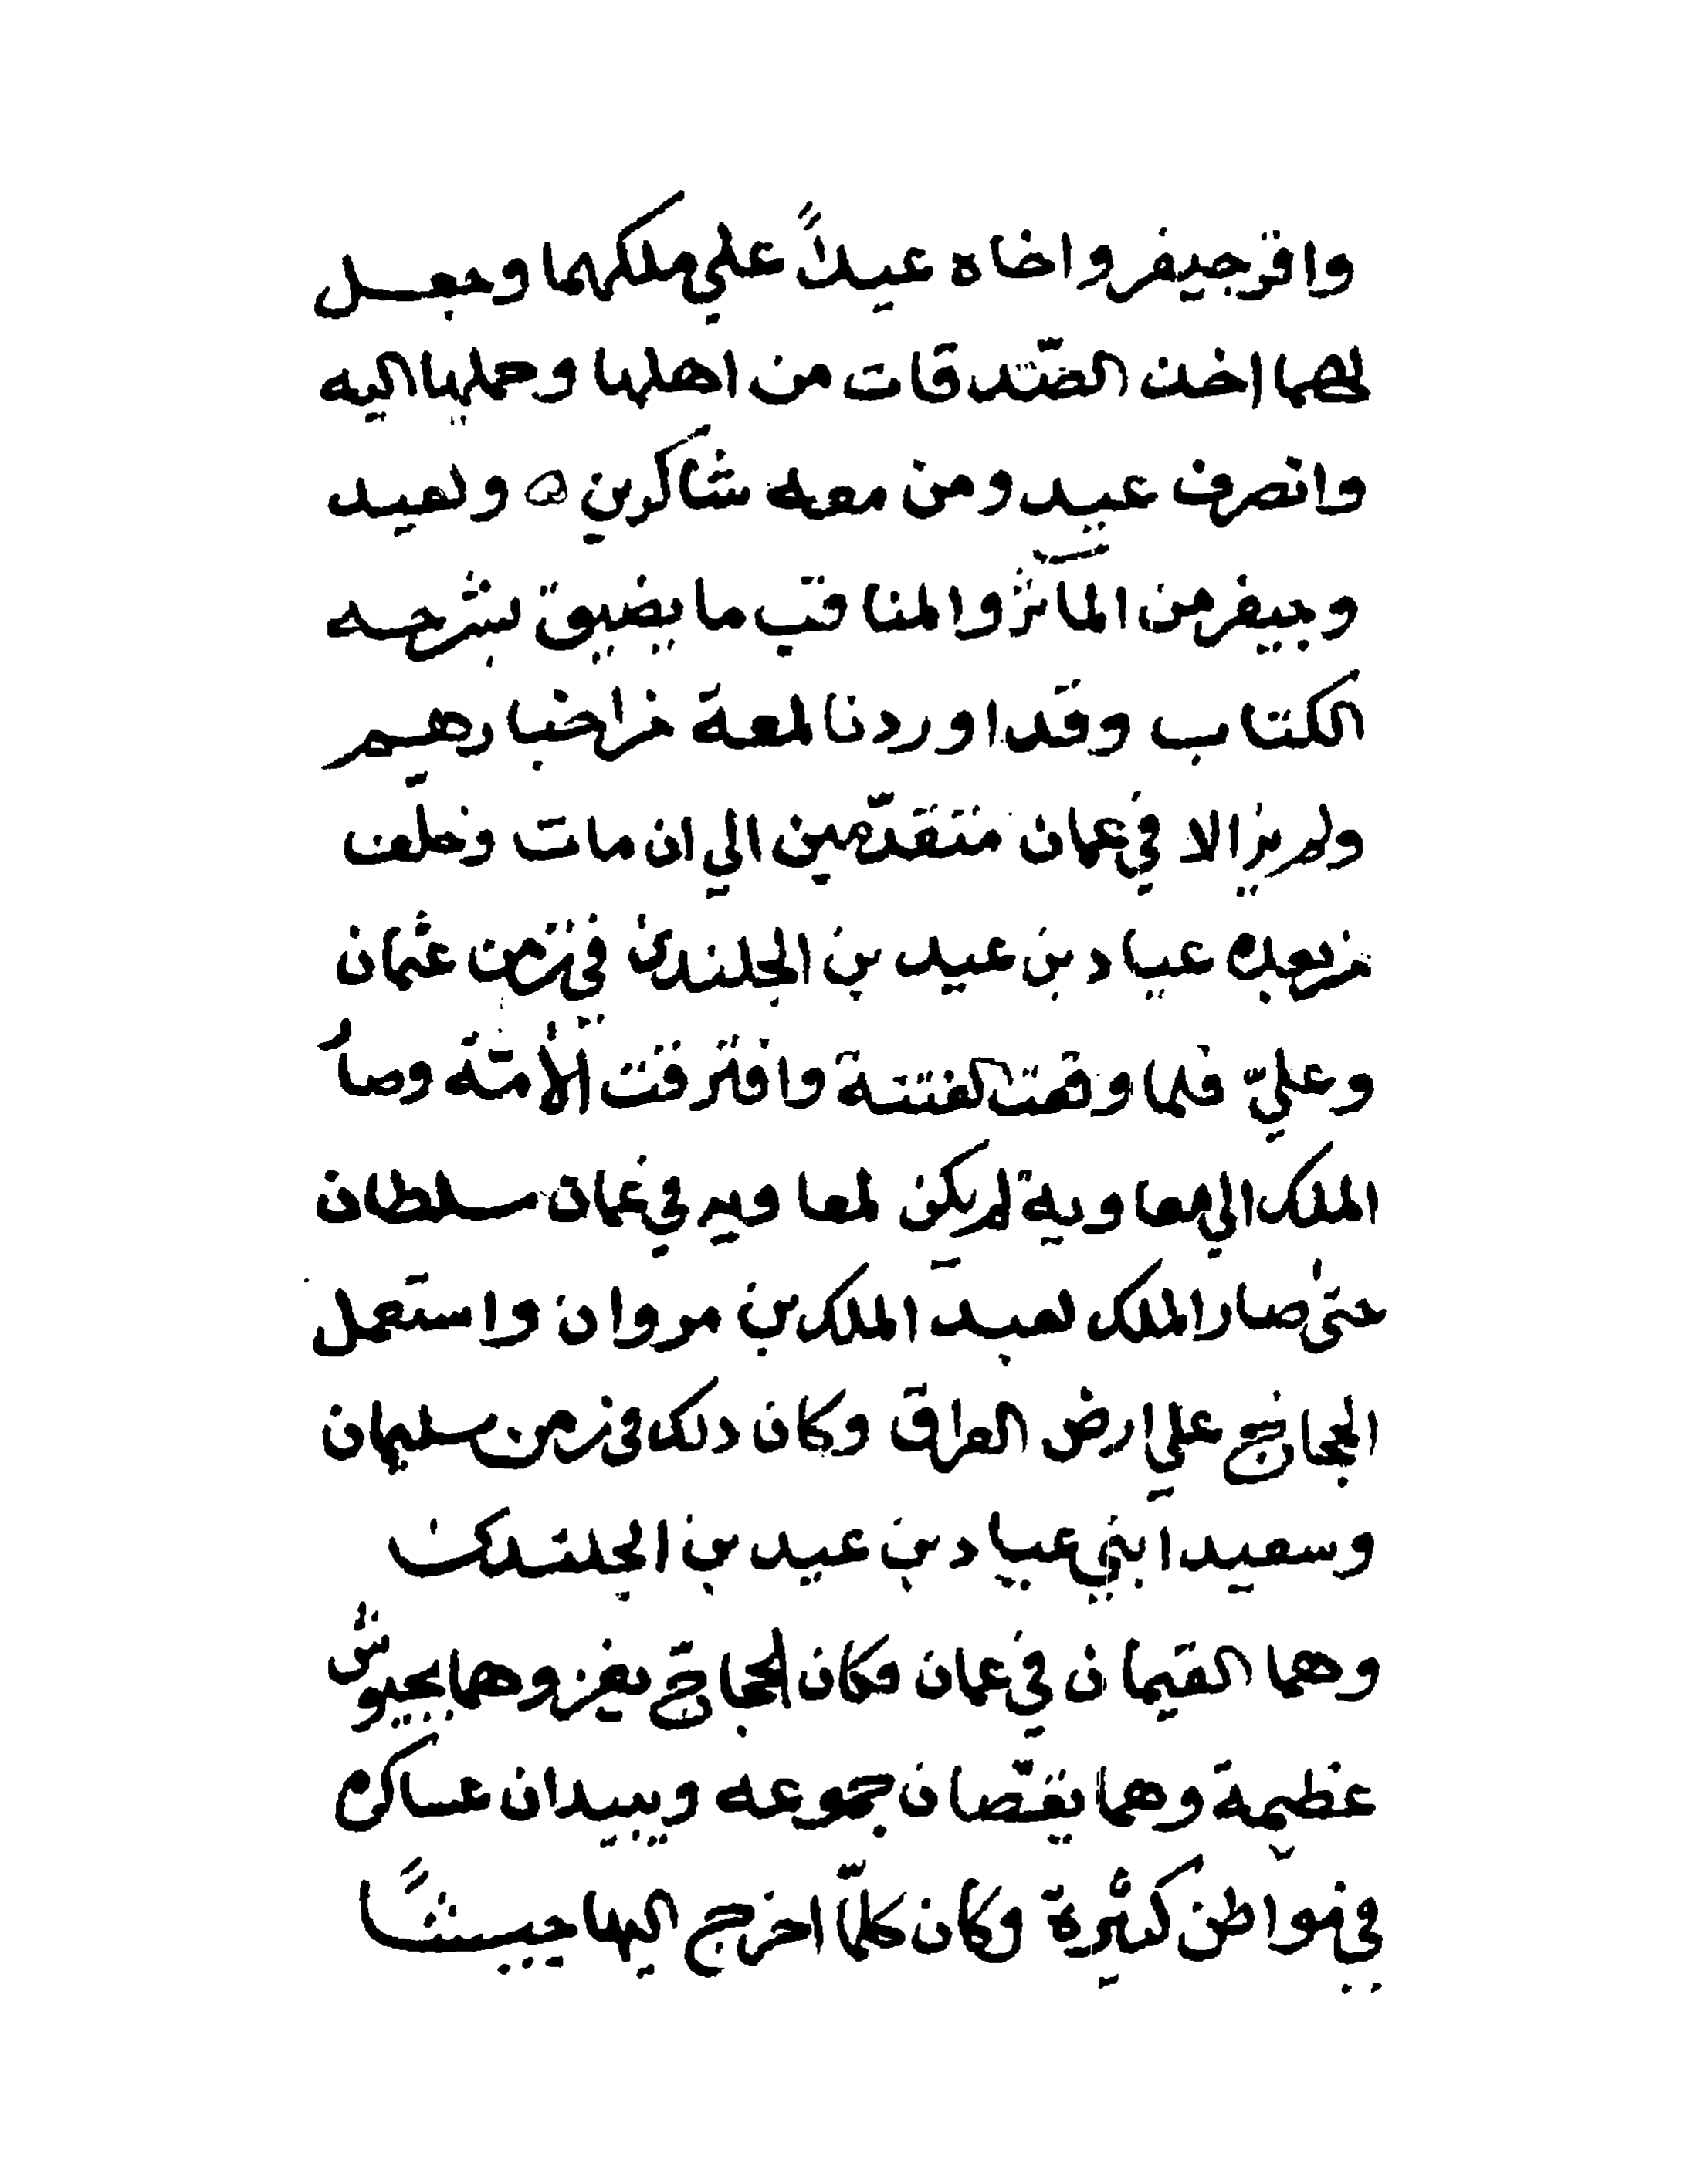 واقر جيفر واخاه عيداً علي ملكهما وجعل
لهما اخذ الصّدقات من اهلها وحملها اليه
وانصرف عبيد ومن معه شاكرين ه ولعيد
وجيفر من المآثر والمناقب ما يضيق بشرحه
الكتاب وقد اوردنا لمعة من اخبارهيم
ولم يزالا في عمان متقدّمين الي ان مات وخلف
من بعده عباد بن عيد بن الجلندى في زمن عثمان
وعليّ فلما وقعت الفتنة وافترقت الأمّة وصار
الملك الي معاوية لم يكن لمعاويه في عمان سلطان
حتى صار الملك لعبد الملك بن مروان واستعمل
الحجاج علي ارض العراق وكان دلك في زمن سليمان
وسعيد ابني عباد بن عيد بن الجلندى
وهما القيمان في عمان وكان الحجاج يغزوهما بجيوش
عظيمة وهما يفضّان جموعه ويبيدان عساكره
في مواطن كثيرة وكان كلمّا اخرج اليهما جيشاً